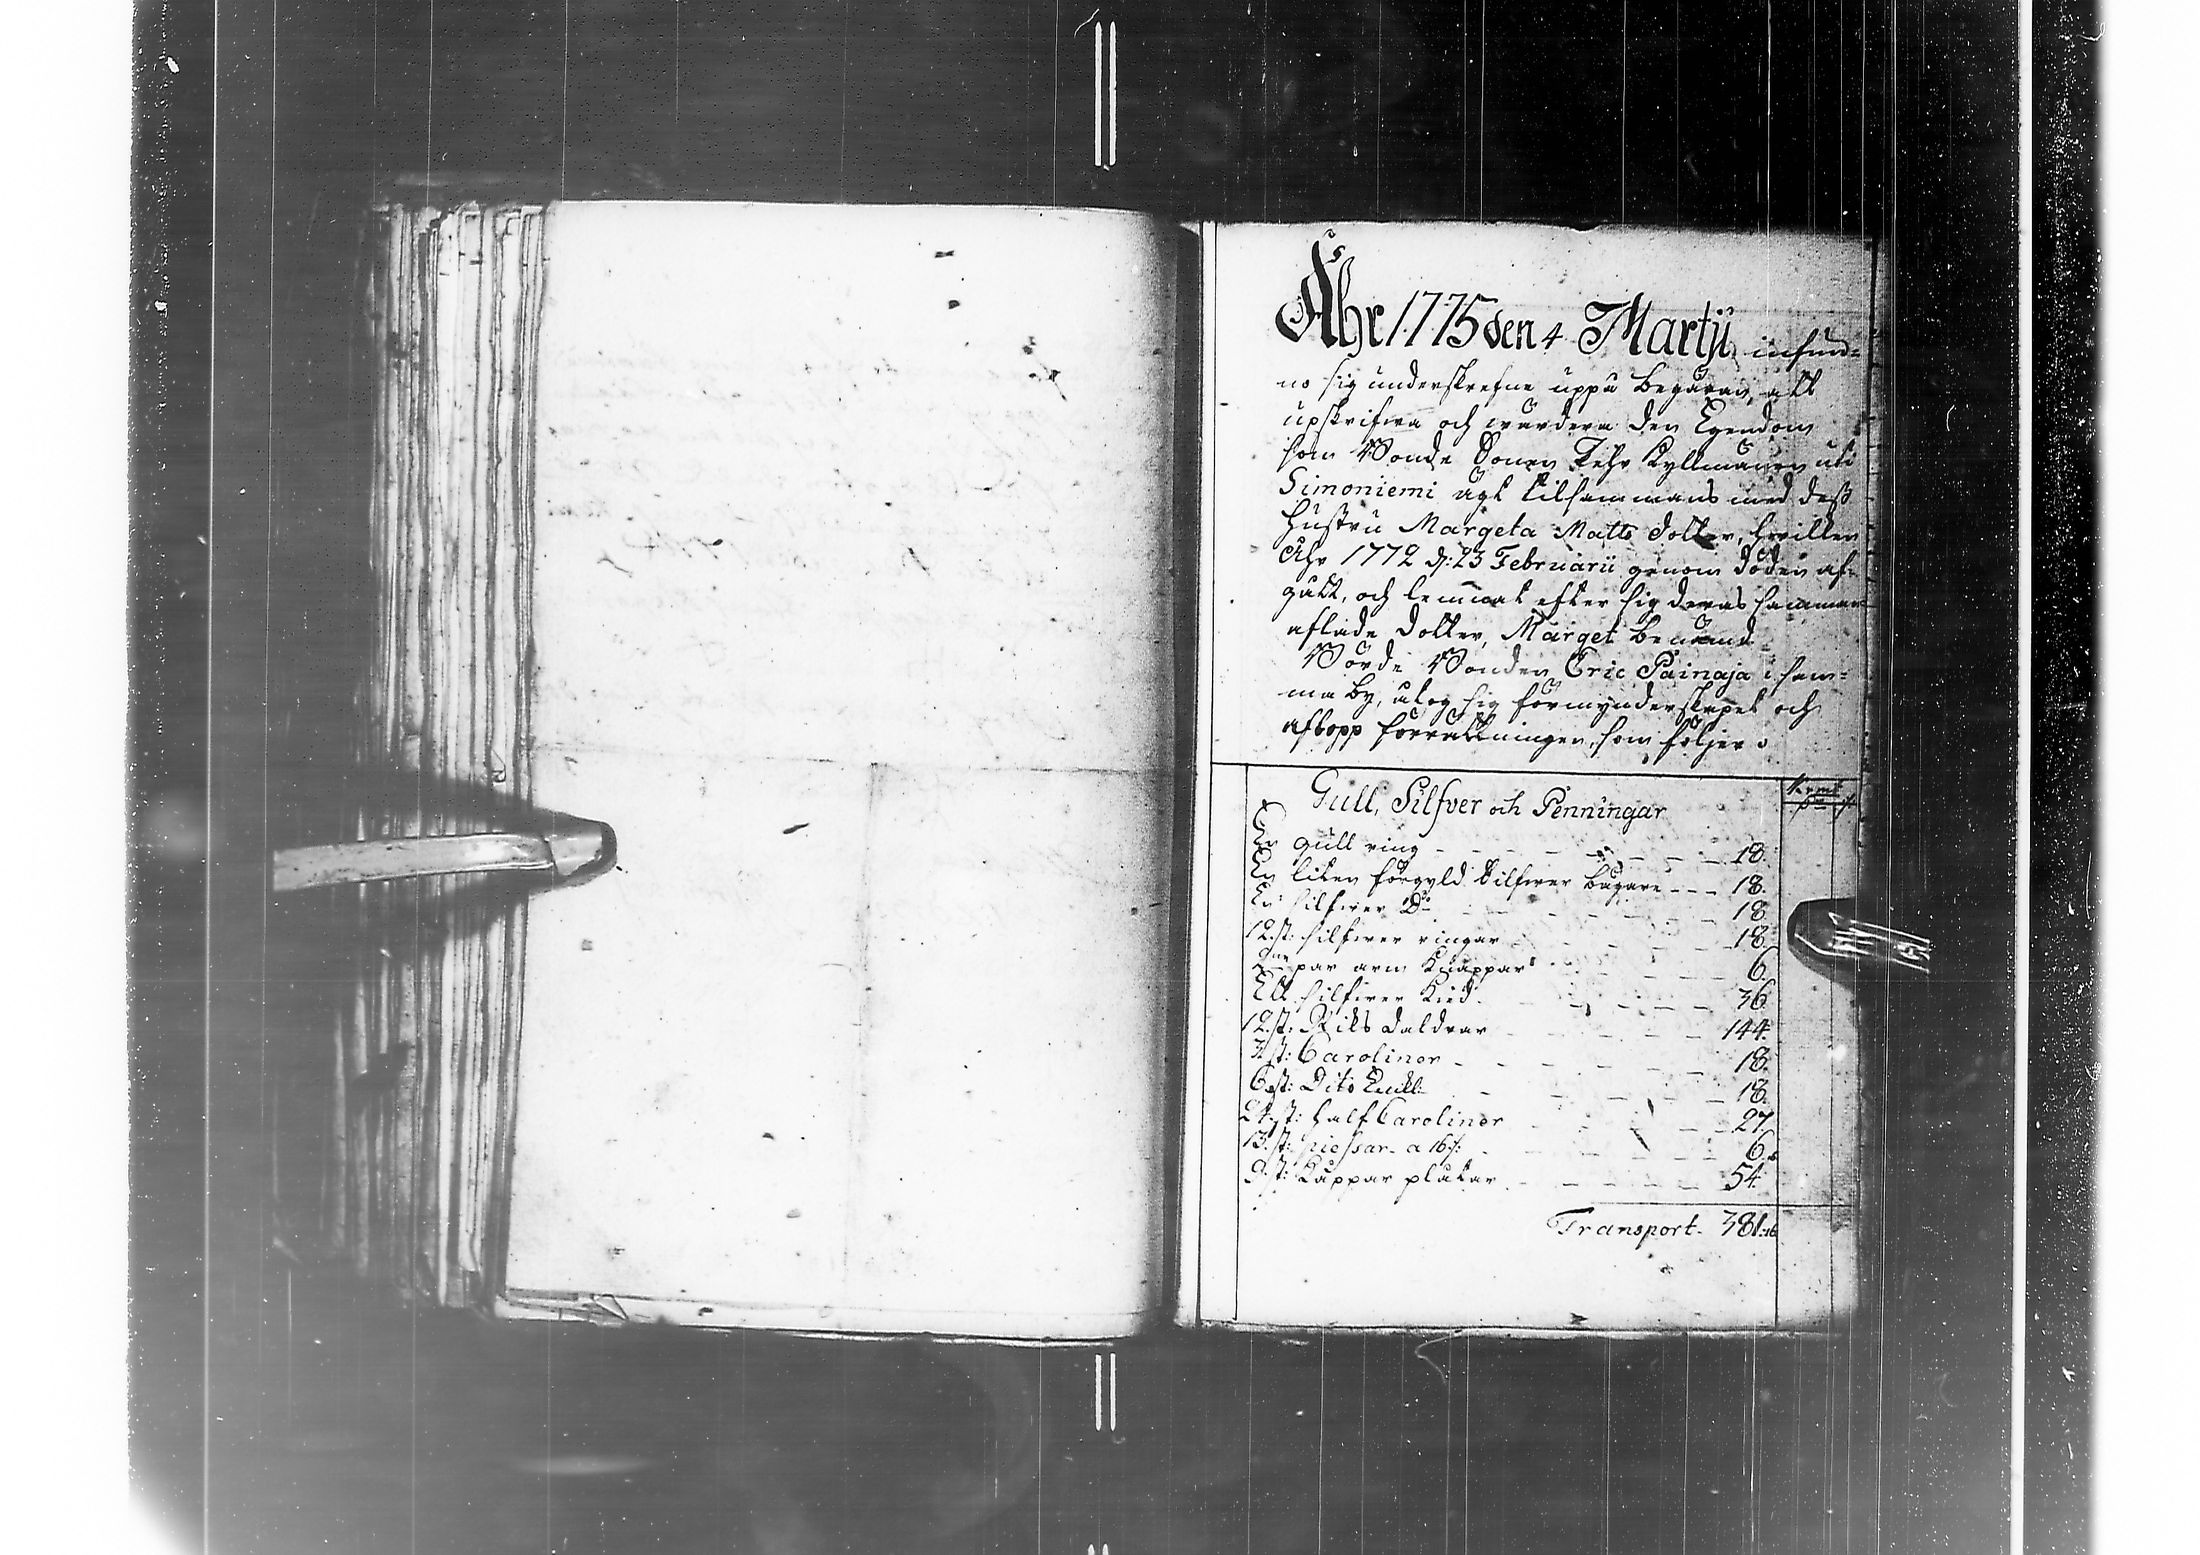 Åhr 1775 den 4 Martii, infun-
no sig underskrefne uppå begäran, att
upskrifwa och wärdera den Egendom
som Bonde Sonen Pehr Kyllmänen uti
Simoniemi ägt tilsammans med dess
hustru Margeta Matts dotter, hwilken
Åhr 1772 d: 23 Februarii genom döden af-
gått, och lemnat efter sig deras samman
aflade dotter, Marget benämd.
Börde Bonden Eric Påinaja i sam-
ma by, utog sig förmynderskapet och
aflopp förrättningen, som följer:
Gull, Silfver och Penningar
En gull ring 18.
En liten förgyld silfwer bägare 18.
En silfwer Do 18
12. st: silfwer ringar 18
par arm Knappar 6
Ett silfwer Kied 36
12. st: Riks daldrar 144.
3 st: Caroliner 18.
6 st: Dito Enkl: 18.
24. st: half Caroliner 27.
13. st: piessar a 16 /: 6.
9. st: Kåppar plåtar 54.
Transport. 381:16